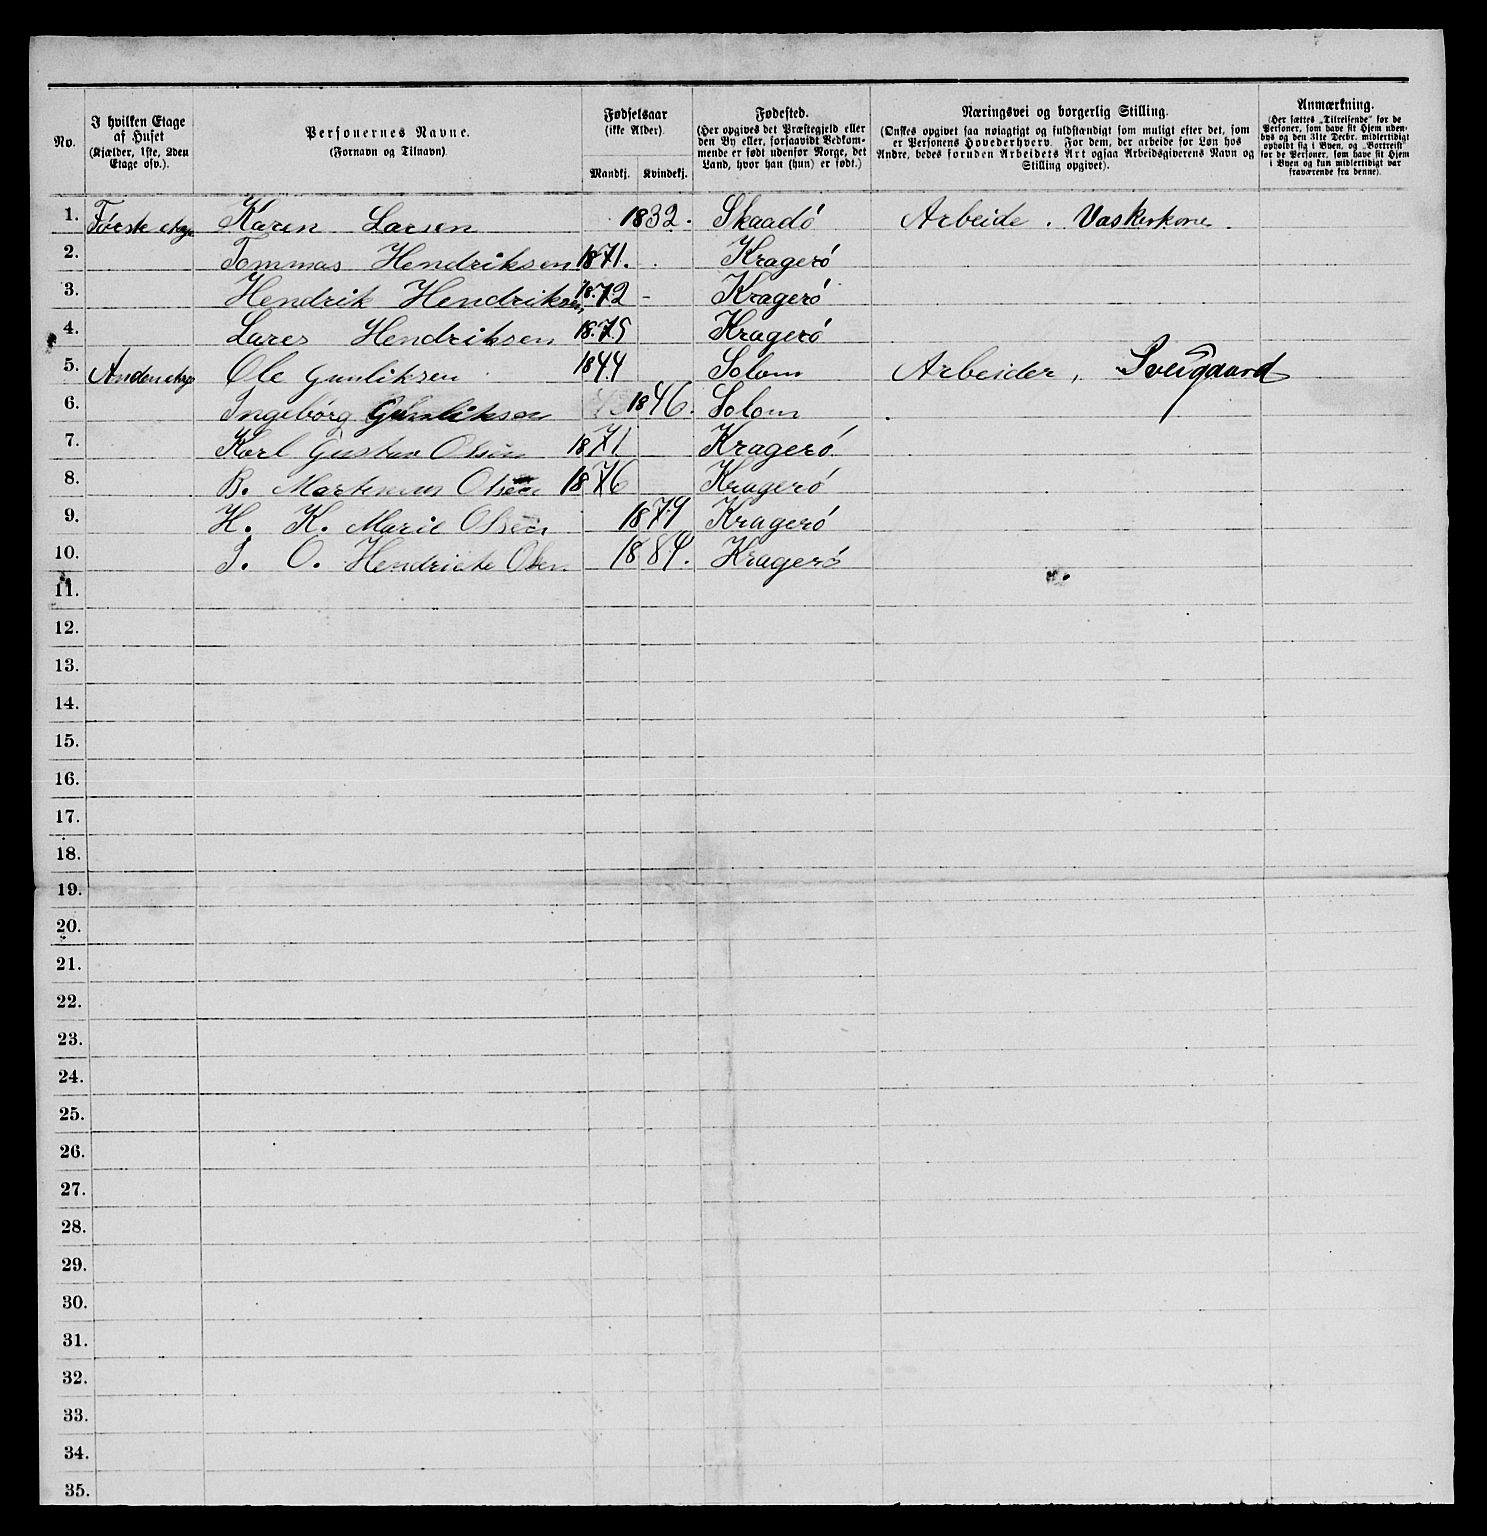 No. | I hvilken Etage af Huset (Kjælder, 1ste, 2den Etage osv.). | Personernes Navne. (Fornavn og Tilnavn). | Fødselsaar (ikke Alder). Mandkj. Kvindekj. | Fødested. (Her opgives det Præstegjeld eller den By eller, forsaavidt Vedkommende er født udenfor Norge, det Land, hvor han (hun) er født.) | Næringsvei og borgerlig Stilling. (Ønskes opgivet saa nøiagtigt og fuldstændigt som muligt efter det, som er Personens Hovederhverv. For dem, der arbeide for Løn hos Andre, bedes foruden Arbeidets Art ogsaa Arbeidsgiverens Navn og Stilling opgivet). | Anmærkning. (Her sættes „Tilreisende“ for de Personer, som have sit Hjem udenbys og den 31te Decbr. midlertidigt opholdt sig i Byen, og „Bortreist“ for de Personer, som have sit Hjem i Byen og kun midlertidigt var fraværende fra denne).
1. Første etage Karen Larsen 1832. Skaadö Arbeide. Vaskerkone.
2. Tommas Hendriksen 1871. Kragerö
3. Hendrik Hendriksen 1872 - Kragerö
4. Lares Hendriksen 1875 Kragerö
5. Anden etage Ole Gunliksen 1844 Solom Arbeider, Sveigaard
6. Ingebórg Gunliksen 1846. Solom
7. Karl Gustav Olsen 1871 Kragerö
8. B. Martinius Olsen 1876 Kragerö
9. H. K. Marie Olsen 1879 Kragerö
10. O. Hendricke Olsen 1884. Kragerö
11.
12.
13.
14.
15.
16.
17.
18.
19.
20.
21.
22.
23.
24.
25.
26.
27.
28.
29.
30.
31.
32.
33.
34.
35.